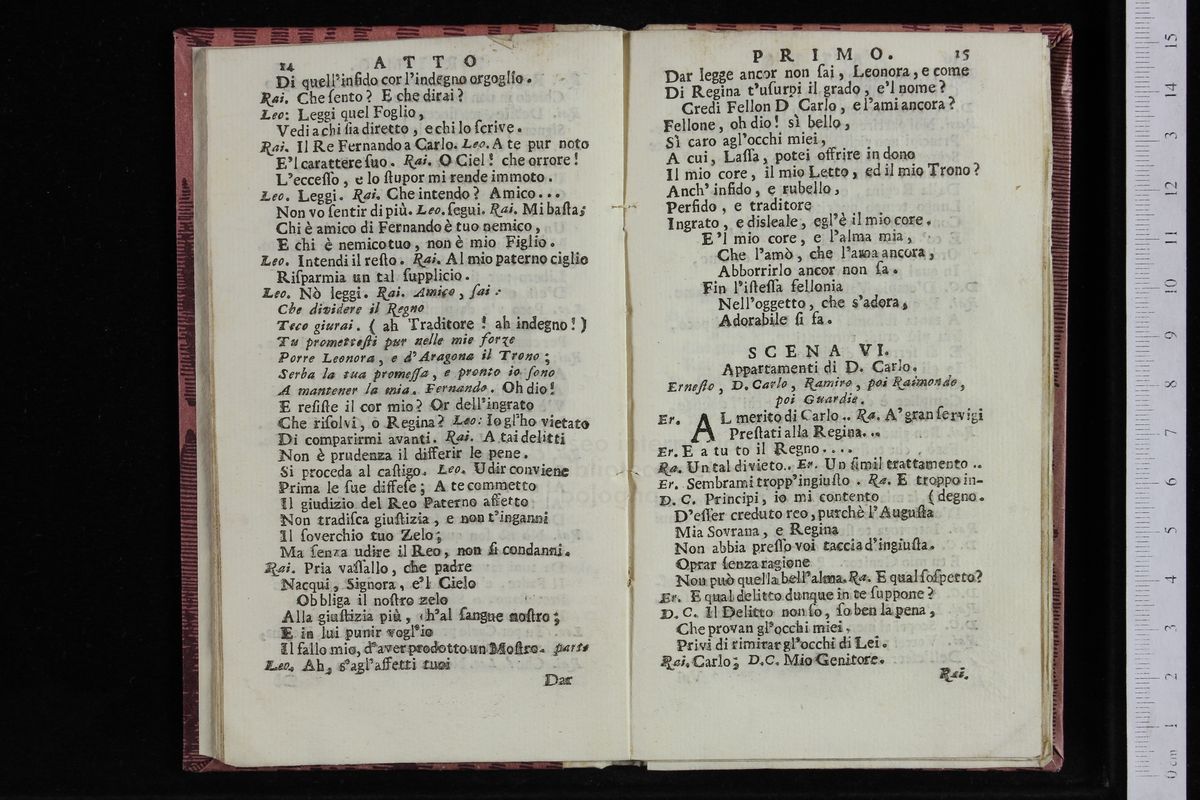 14 ATTO
Di quell'infido cor l'indegno orgoglio.
Rai. Che ſento? E che dirai?
Leo: Leggi quel Foglio,
Vedi a chi ſia diretto, e chi lo ſcrive.
Rai. Il Re Fernando a Carlo. Leo. A te pur noto
E'l carattere ſuo. Rai. O Ciel! che orrore!
L'ecceſſo, e lo ſtupor mi rende immoto.
Leo. Leggi. Rai. Che intendo? Amico...
Non vo ſentir di più. Leo. ſegui. Rai. Mi baſta;
Chi è amico di Fernando è tuo nemico,
E chi è nemico tuo, non è mio Figlio.
Leo. Intendi il reſto. Rai. Al mio paterno ciglio
Riſparmia un tal ſupplicio.
Leo. Nò leggi. Rai. Amico, ſai:
Che dividere il Regno
Teco giurai. ( ah Traditore! ah indegno!)
Tu prometteſti pur nelle mie forze
Porre Leonora, e d'Aragona il Trono;
Serba la tua promeſſa, e pronto io ſono
A mantener la mia. Fernando. Oh dio!
E reſiſte il cor mio? Or dell'ingrato
Che riſolvi, o Regina? Leo: Io gl'ho vietato
Di comparirmi avanti. Rai. A tai delitti
Non è prudenza il differir le pene.
Si proceda al caſtigo. Leo. Udir conviene
Prima le ſue diffeſe; A te commetto
Il giudizio del Reo Paterno affetto
Non tradiſca giuſtizia, e non t'inganni
Il ſoverchio tuo Zelo;
Ma ſenza udire il Reo, non ſi condanni.
Rai. Pria vaſſallo, che padre
Nacqui, Signora, e'l Cielo
Obbliga il noſtro zelo
Alla giuſtizia più, ch'al ſangue noſtro;
E in lui punir vogl'io
Il fallo mio, d'aver prodotto un Moſtro. parte
Leo. Ah, s'agl'affetti tuoi
Dar
PRIMO. 15
Dar legge ancor non ſai, Leonora, e come
Di Regina t'uſurpi il grado, e'l nome?
Credi Fellon D Carlo, e l'ami ancora?
Fellone, oh dio! sì bello,
Sì caro agl'occhi miei,
A cui, Laſſa, potei offrire in dono
Il mio core, il mio Letto, ed il mio Trono?
Anch' infido, e rubello,
Perfido, e traditore
Ingrato, e disleale, egl'è il mio core.
E'l mio core, e l'alma mia,
Che l'amò, che l'ama ancora,
Abborrirlo ancor non ſa.
Fin l'iſteſſa fellonia
Nell'oggetto, che s'adora,
Adorabile ſi fa.
SCENA VI.
Appartamenti di D. Carlo.
Erneſto, D. Carlo, Ramiro, poi Raimondo,
poi Guardie.
Er. AL merito di Carlo.. Ra. A' gran ſervigi
Preſtati alla Regina...
Er. E a tu to il Regno....
Ra. Un tal divieto.. Er. Un ſimil trattamento ..
Er. Sembrami tropp'ingiuſto. Ra. E troppo in-
D. C. Principi, io mi contento (degno.
D'eſſer creduto reo, purchè l'Auguſta
Mia Sovrana, e Regina
Non abbia preſſo voi taccia d'ingiuſta.
Oprar ſenza ragione
Non può quella bell'alma. Ra. E qual ſoſpetto?
Er. E qual delitto dunque in te ſuppone?
D. C. Il Delitto non ſo, ſo ben la pena,
Che provan gl'occhi miei,
Privi di rimirar gl'occhi di Lei.
Rai. Carlo; D.C. Mio Genitore.
Rai.